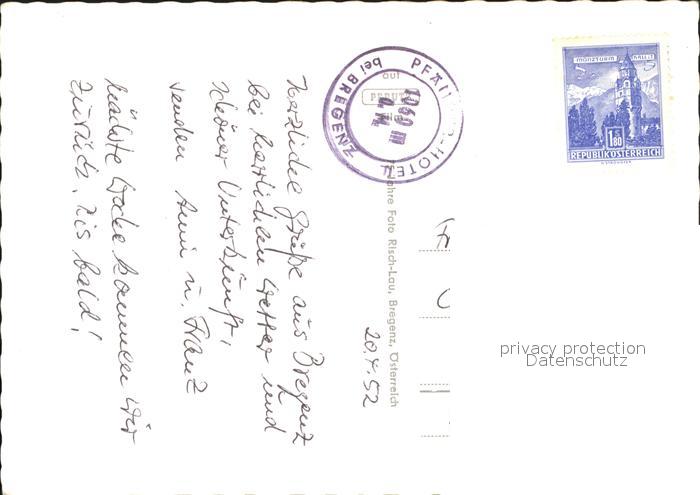 Herzliche Grüße aus Bregenz
bei herrlichem Wetter und
schöner Unterkunft,
senden Anni u. Franz
nächste Woche kommen wir
zurück, bis bald!
20.4.52
auf
PFÄ
HOTEL
bei BREGENZ
1060 m
Jahre Foto Risch-Lau, Bregenz, Österreich
MÜNZTURM HALL
1.80
REPUBLIK ÖSTERREICH
privacy protection
Datenschutz